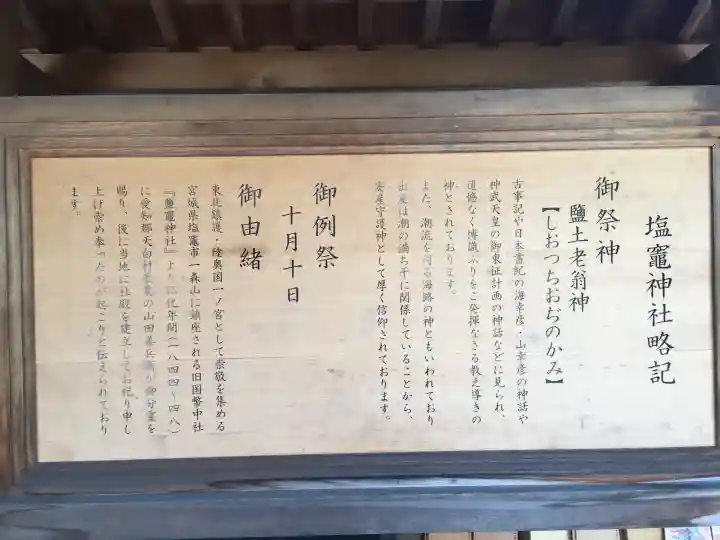 塩竈神社略記
御祭神
鹽土老翁神
【しおつちおぢのかみ】
古事記や日本書紀の海幸彦・山幸彦の神話や
神武天皇の御東征計画の神話などに見られ、
遺憾なく博識ぶりをご発揮なさる教え導きの
神とされております。
また、潮流を司る海路の神ともいわれており
出産は潮の満ち干に関係していることから、
安産守護神として厚く信仰されております。
御例祭
十月十日
御由緒
東北鎮護・陸奥国一ノ宮として崇敬を集める
宮城県塩竈市一森山に鎮座される旧国幣中社
『鹽竈神社』より弘化年間(一八四四〜四八)
に愛知郡天白村の山田善兵衛が御分霊を
賜り、後に当地に社殿を建立してお祀り申し
上げ崇め奉ったのが起こりと伝えられており
ます。